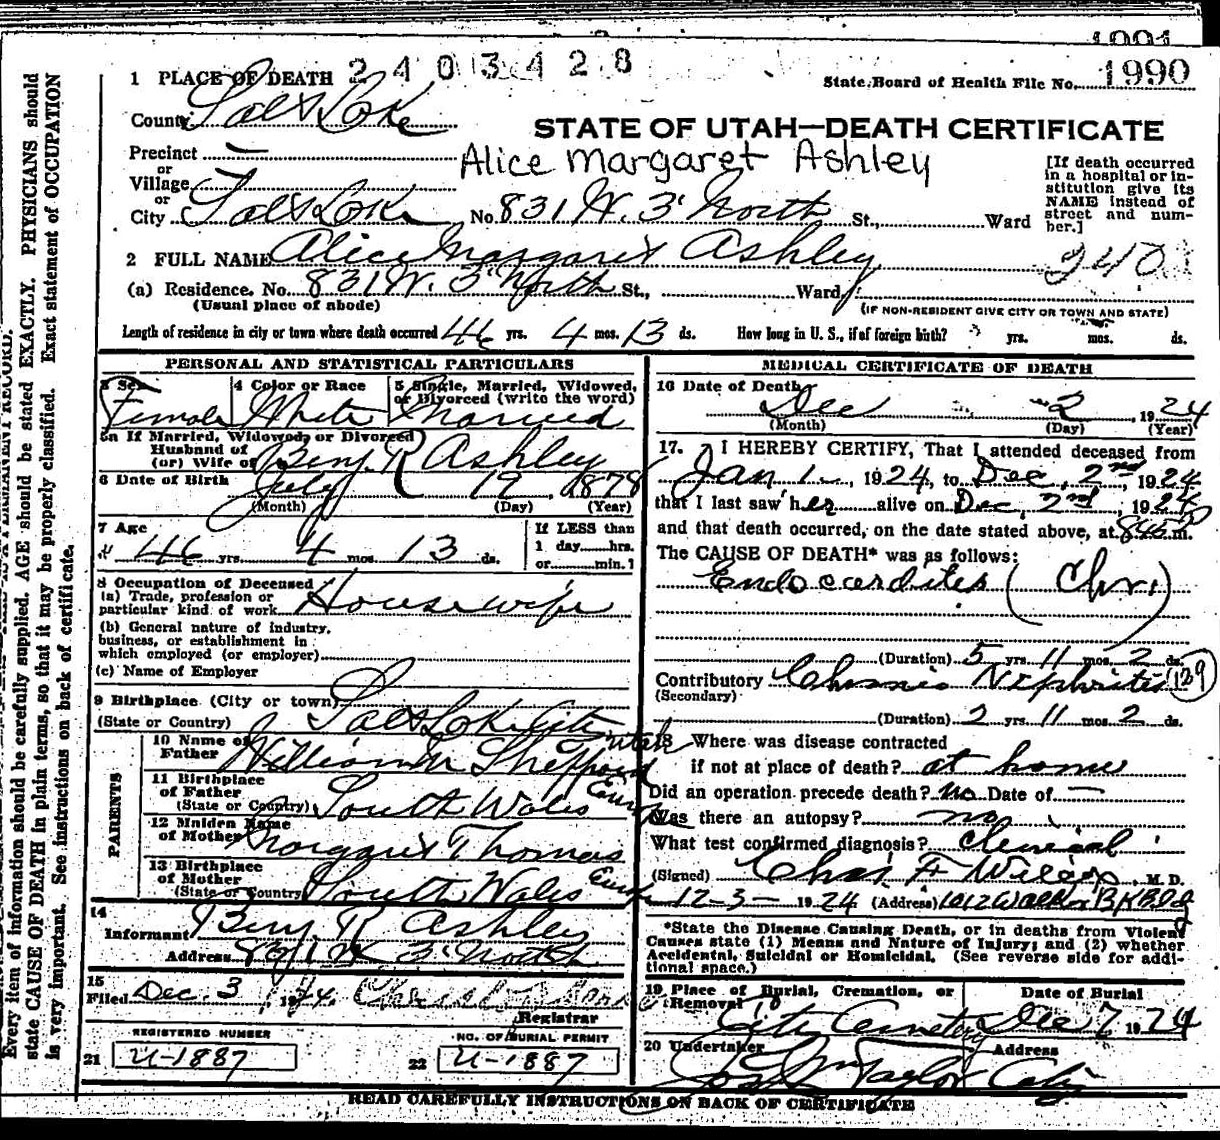 1991
2403428
1 PLACE OF DEATH
State Board of Health File No. 1990
County Salt Lake
STATE OF UTAH—DEATH CERTIFICATE
Precinct —
or
Village
or
Alice Margaret Ashley
[If death occurred in a hospital or in-
stitution give its
NAME instead of
street and num-
ber.]
City Salt Lake No. 831 W. 3' North St., Ward
2 FULL NAME Alice Margaret Ashley
240
(a) Residence. No. 831 W. 3' North St., Ward,
(Usual place of abode)
(IF NON-RESIDENT GIVE CITY OR TOWN AND STATE)
Length of residence in city or town where death occurred 46 yrs. 4 mos. 13 ds. How long in U. S., if of foreign birth? yrs. mos. ds.
PERSONAL AND STATISTICAL PARTICULARS
3 Sex
Female
4 Color or Race
White
5 Single, Married, Widowed,
or Divorced (write the word)
Married
5a If Married, Widowed, or Divorced
Husband of
(or) Wife of Benj. R Ashley
6 Date of Birth July 19, 1878
(Month) (Day) (Year)
7 Age
46 yrs. 4 mos. 13 ds.
If LESS than
1 day......hrs.
or......min.]
8 Occupation of Deceased
(a) Trade, profession or
particular kind of work Housewife
(b) General nature of industry,
business, or establishment in
which employed (or employer)
(c) Name of Employer
9 Birthplace (City or town)
(State or Country) Salt Lake City Utah
PARENTS
10 Name of
Father William Sheppard
11 Birthplace
of Father
(State or Country) South Wales
12 Maiden Name
of Mother Margaret Thomas
13 Birthplace
of Mother
(State or Country) South Wales
14
Informant Benj R Ashley
Address 831 W 3' North
15
Filed Dec. 3, 1924.
Registrar
REGISTERED NUMBER
21 U-1887
NO. OF BURIAL PERMIT
22 U-1887
MEDICAL CERTIFICATE OF DEATH
16 Date of Death
Dec 2, 1924
(Month) (Day) (Year)
17. I HEREBY CERTIFY, That I attended deceased from
Jan 1, 1924, to Dec, 2nd, 1924
that I last saw her alive on Dec, 2nd, 1924
and that death occurred, on the date stated above, at 845 P m.
The CAUSE OF DEATH* was as follows:
Endocarditis (Chr.)
(Duration) 5 yrs. 11 mos. 2 ds.
Contributory Chronic Nephritis 129
(Secondary)
(Duration) 2 yrs. 11 mos. 2 ds.
18 Where was disease contracted
if not at place of death? at home
Did an operation precede death? no Date of —
Was there an autopsy? no
What test confirmed diagnosis? Clinical
(Signed) Chas. F Wilcox, M. D.
12-3- 1924 (Address) 1012 Walker Bk Bldg
*State the Disease Causing Death, or in deaths from Violent
Causes state (1) Means and Nature of Injury; and (2) whether
Accidental, Suicidal or Homicidal. (See reverse side for addi-
tional space.)
19 Place of Burial, Cremation, or
Removal
City Cemetery
Date of Burial
Dec 7 1924
20 Undertaker
Jos Wm Taylor
Address
City
READ CAREFULLY INSTRUCTIONS ON BACK OF CERTIFICATE
Every item of information should be carefully supplied. AGE should be stated EXACTLY. PHYSICIANS should
state CAUSE OF DEATH in plain terms, so that it may be properly classified. Exact statement of OCCUPATION
is very important. See instructions on back of certificate.